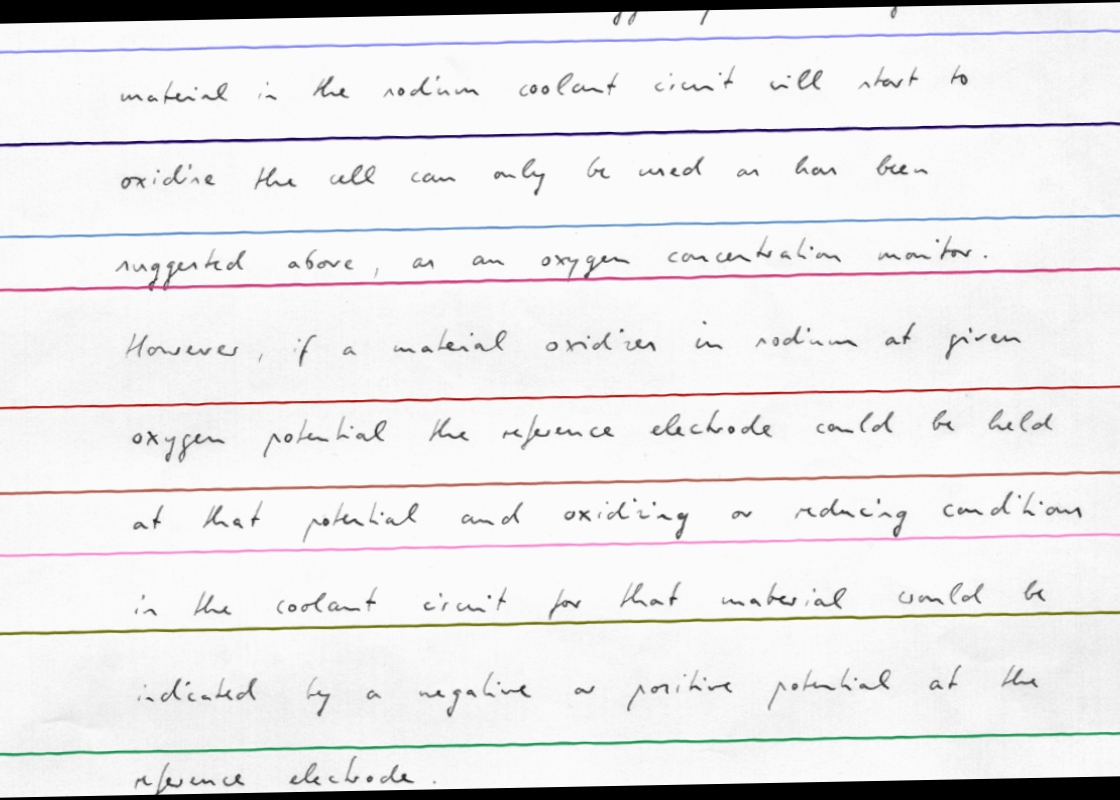 material in the sodium coolant circuit will start to
oxidise the cell can only be used as has been
suggested above, as an oxygen concentration monitor.
However, if a material oxidizes in sodium at given
oxygen potential the reference electrode could be held
at that potential and oxidizing or reducing conditions
in the coolant circuit for that material would be
indicated by a negative or positive potential at the
reference electrode.